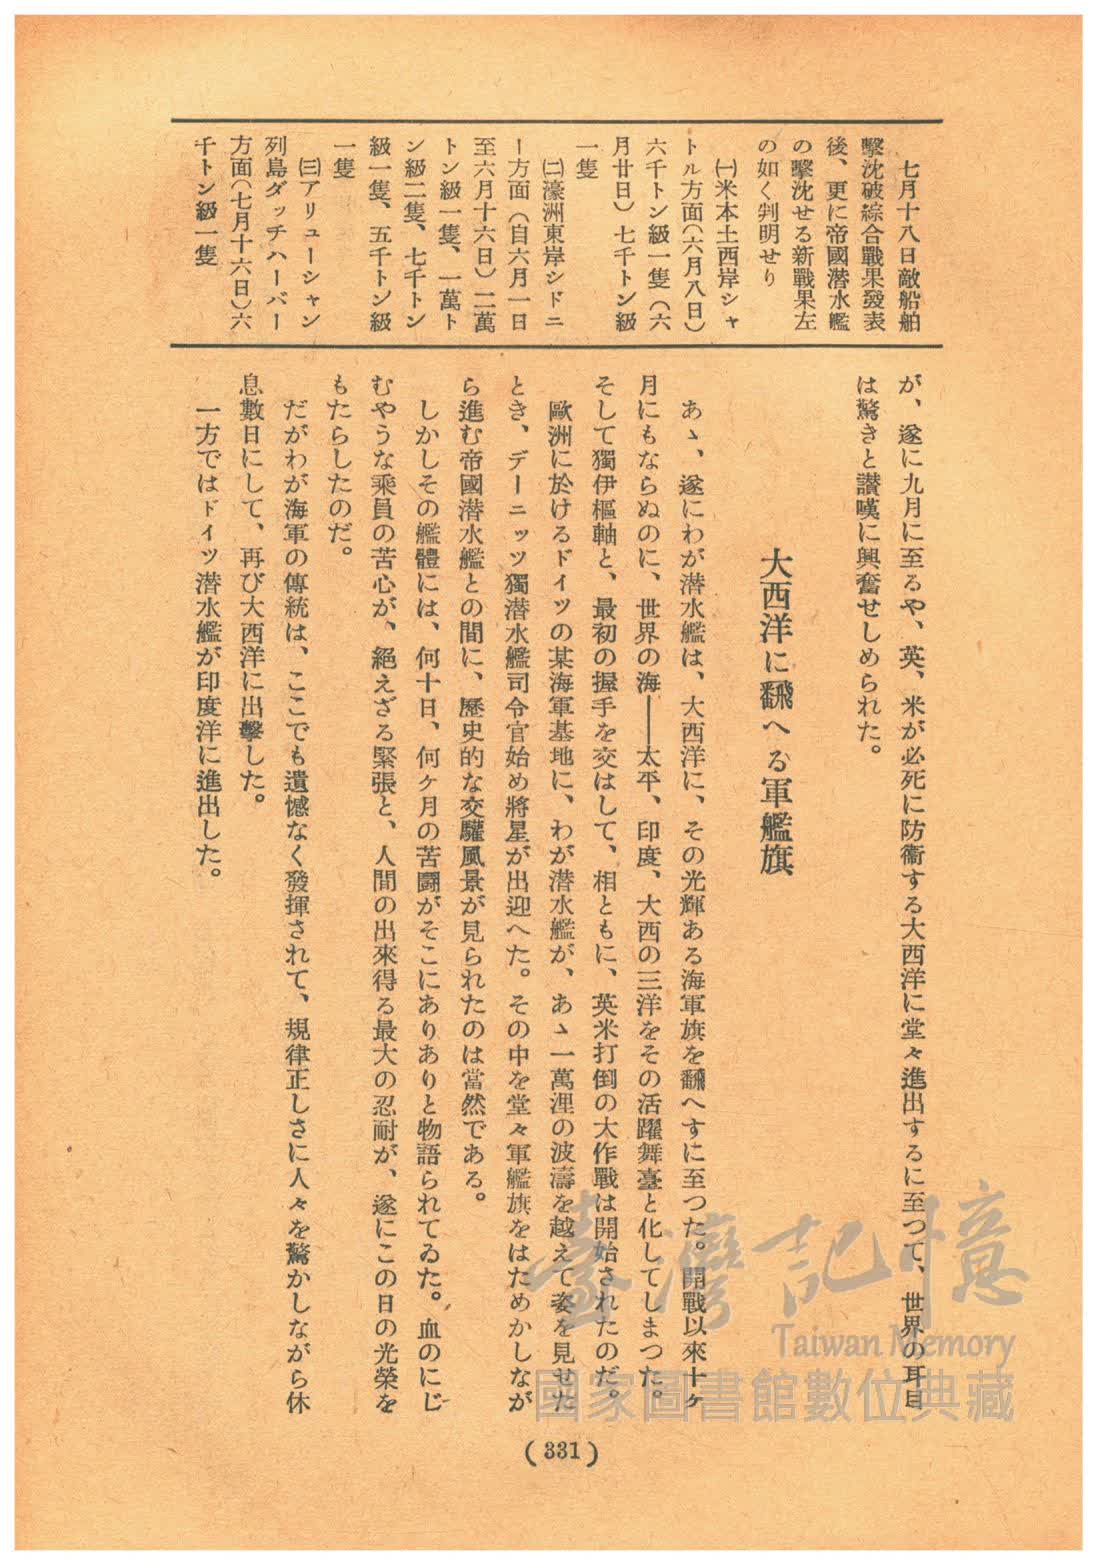 七月十八日敵船舶
擊沈破綜合戰果發表
後、更に帝國潜水艦
の擊沈せる新戰果左
の如く判明せり
㈠米本土西岸シャ
トル方面(六月八日)
六千トン級一隻(六
月廿日)七千トン級
一隻
㈡濠洲東岸シドニ
ー方面(自六月一日
至六月十六日)二萬
トン級一隻、一萬ト
ン級二隻、七千トン
級一隻、五千トン級
一隻
㈢アリューシャン
列島ダッチハーバー
方面(七月十六日)六
千トン級一隻
が、遂に九月に至るや、英、米が必死に防衞する大西洋に堂々進出するに至つて、世界の耳目
は驚きと讃嘆に興奮せしめられた。
大西洋に飜へる軍艦旗
あゝ、遂にわが潜水艦は、大西洋に、その光輝ある海軍旗を飜へすに至つた。開戰以來十ヶ
月にもならぬのに、世界の海――太平、印度、大西の三洋をその活躍舞臺と化してしまつた。
そして獨伊樞軸と、最初の握手を交はして、相ともに、英米打倒の大作戰は開始されたのだ。
歐洲に於けるドイツの某海軍基地に、わが潜水艦が、あゝ一萬浬の波濤を越えて姿を見せた
とき、デーニッツ獨潜水艦司令官始め將星が出迎へた。その中を堂々軍艦旗をはためかしなが
ら進む帝國潜水艦との間に、歷史的な交驩風景が見られたのは當然である。
しかしその艦體には、何十日、何ケ月の苦闘がそこにありありと物語られてゐた。血のにじ
むやうな乘員の苦心が、絕えざる緊張と、人間の出來得る最大の忍耐が、遂にこの日の光榮を
もたらしたのだ。
だがわが海軍の傳統は、ここでも遺憾なく發揮されて、規律正しさに人々を驚かしながら休
息數日にして、再び大西洋に出擊した。
一方ではドイツ潜水艦が印度洋に進出した。
(331)
臺灣記憶
Taiwan Memory
國家圖書館數位典藏